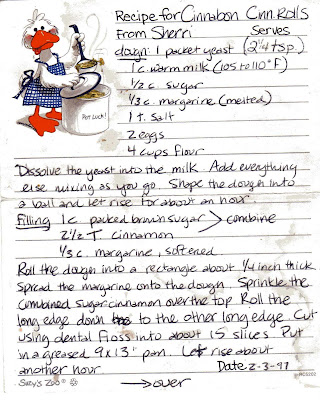 Recipe for Cinnabon Cnn. Rolls
From Sherri Serves
dough: 1 packet yeast (2 1/4 tsp.)
1 c. warm milk (105 to 110° F)
1/2 c. sugar
1/3 c. margarine (melted)
1 t. salt
2 eggs
4 cups flour
POT LUCK!
Dissolve the yeast into the milk Add everything
else mixing as you go. Shape the dough into
a ball and let rise for about an hour.
Filling 1 c packed brown sugar > combine
2 1/2 T. cinnamon
1/3 c. margarine, softened
Roll the dough into a rectangle about 1/4 inch thick
Spread the margarine onto the dough. Sprinkle the
combined sugar cinnamon over the top Roll the
long edge down to the other long edge. Cut
using dental floss into about 15 slices Put
in a greased 9 x 13" pan. Let rise about
another hour Date 2-3-97
Suzy's Zoo®
→ over